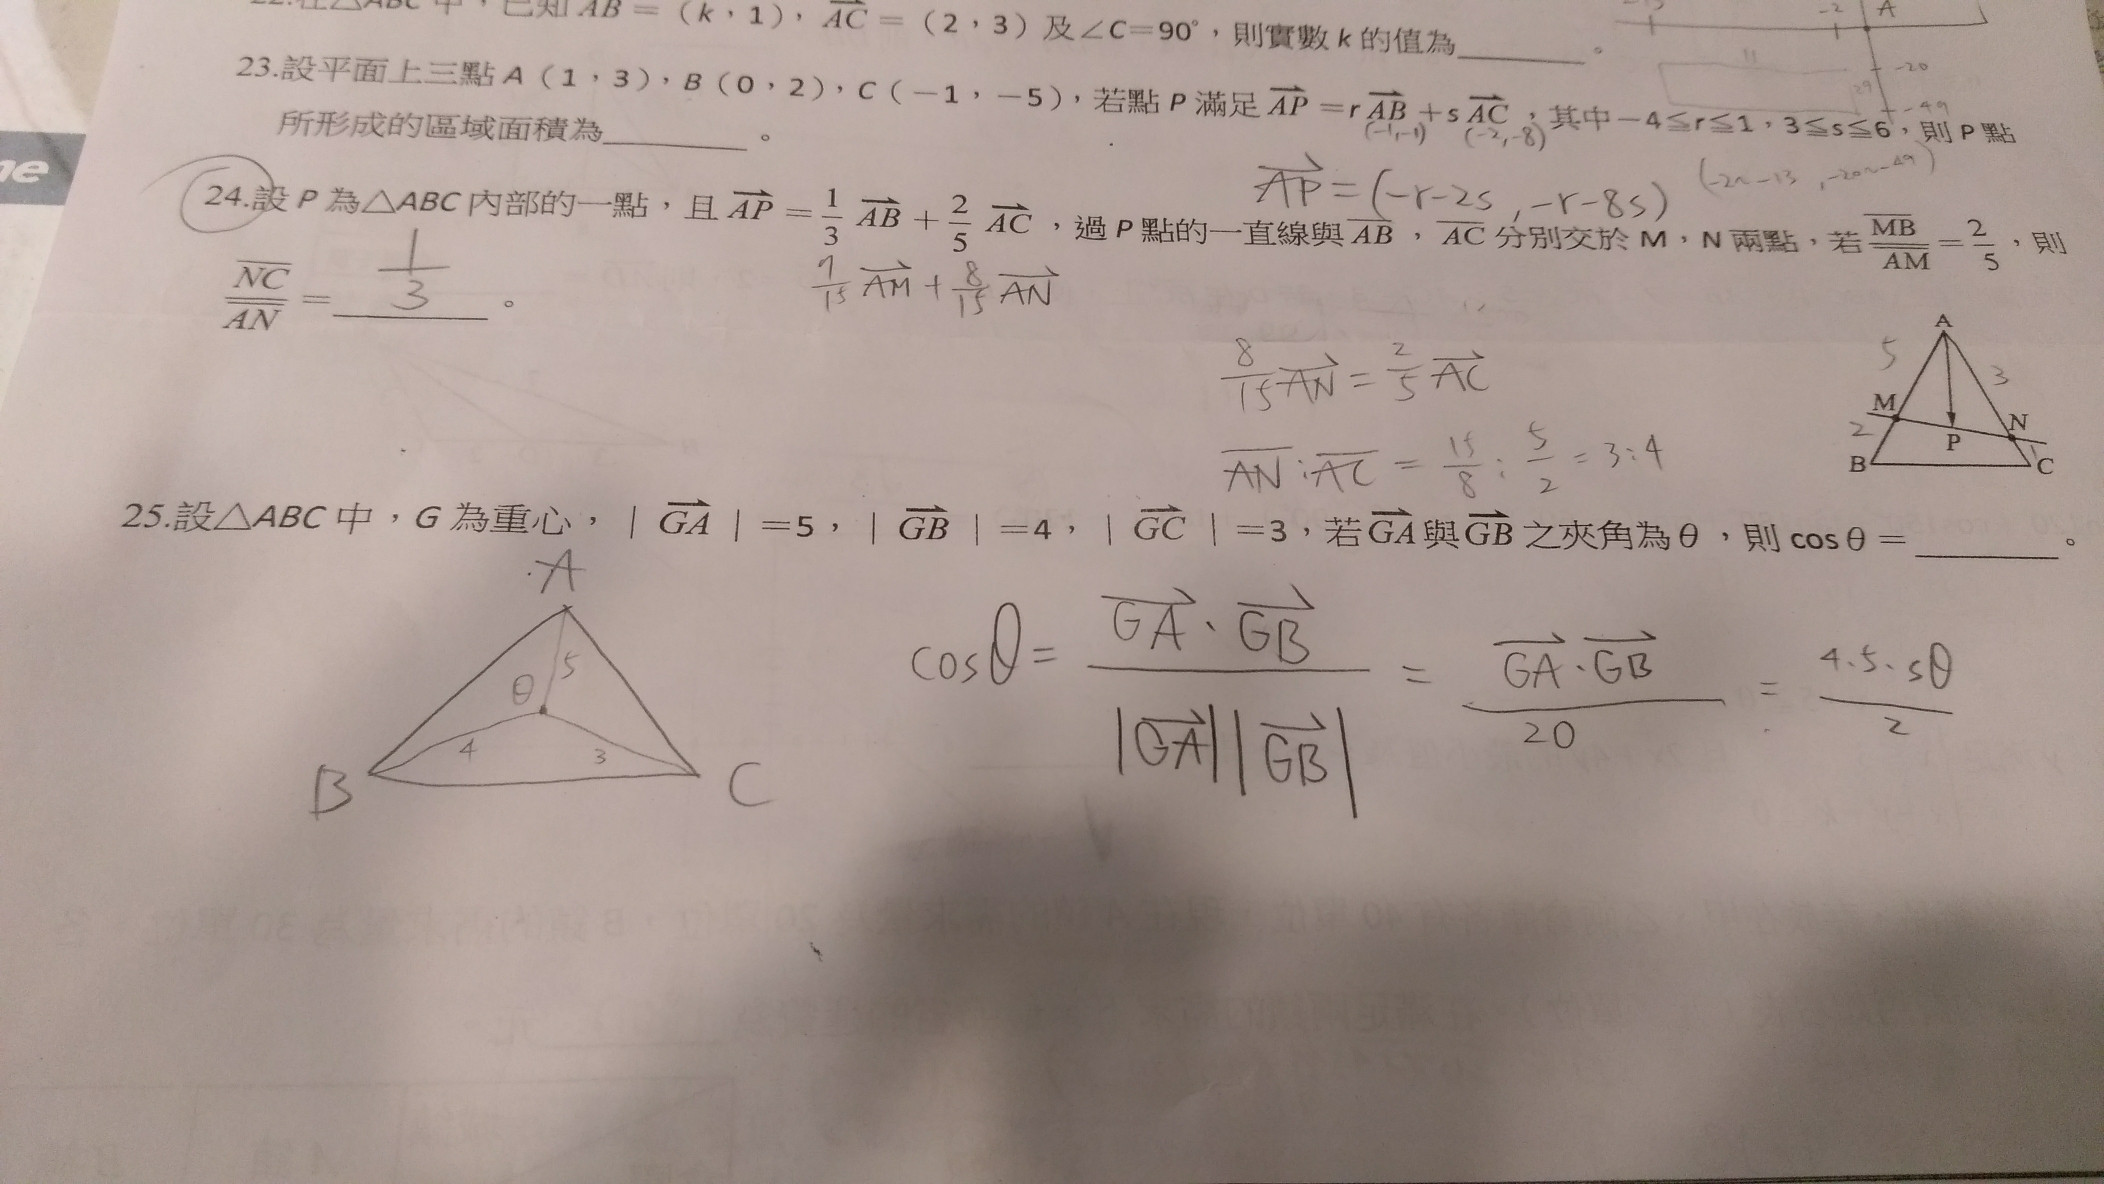 22.在△ABC 中，已知 AB =（k，1），AC =（2，3）及∠C=90°，則實數 k 的值為______。
23.設平面上三點 A（1，3），B（0，2），C（－1，－5），若點 P 滿足 AP =r AB +s AC ，其中－4≦r≦1，3≦s≦6，則 P 點
(-1,-1) (-2,-8)
所形成的區域面積為______。
AP = (-r-2s , -r-8s)
24.設 P 為△ABC 內部的一點，且 AP = 1/3 AB + 2/5 AC ，過 P 點的一直線與 AB ， AC 分別交於 M，N 兩點，若 MB/AM = 2/5 ，則
NC/AN = 1/3 。
7/15 AM + 8/15 AN
8/15 AN = 2/5 AC
AN : AC = 15/8 : 5/2 = 3:4
A
5 3
M N
2 P 1
B C
25.設△ABC 中，G 為重心，| GA |=5，| GB |=4，| GC |=3，若 GA 與 GB 之夾角為 θ ，則 cos θ = ______。
A
θ 5
4 3
B C
cosθ = GA · GB / |GA| |GB| = GA · GB / 20 = 4·5·sθ / 2
A
-2
-20
-49
ne